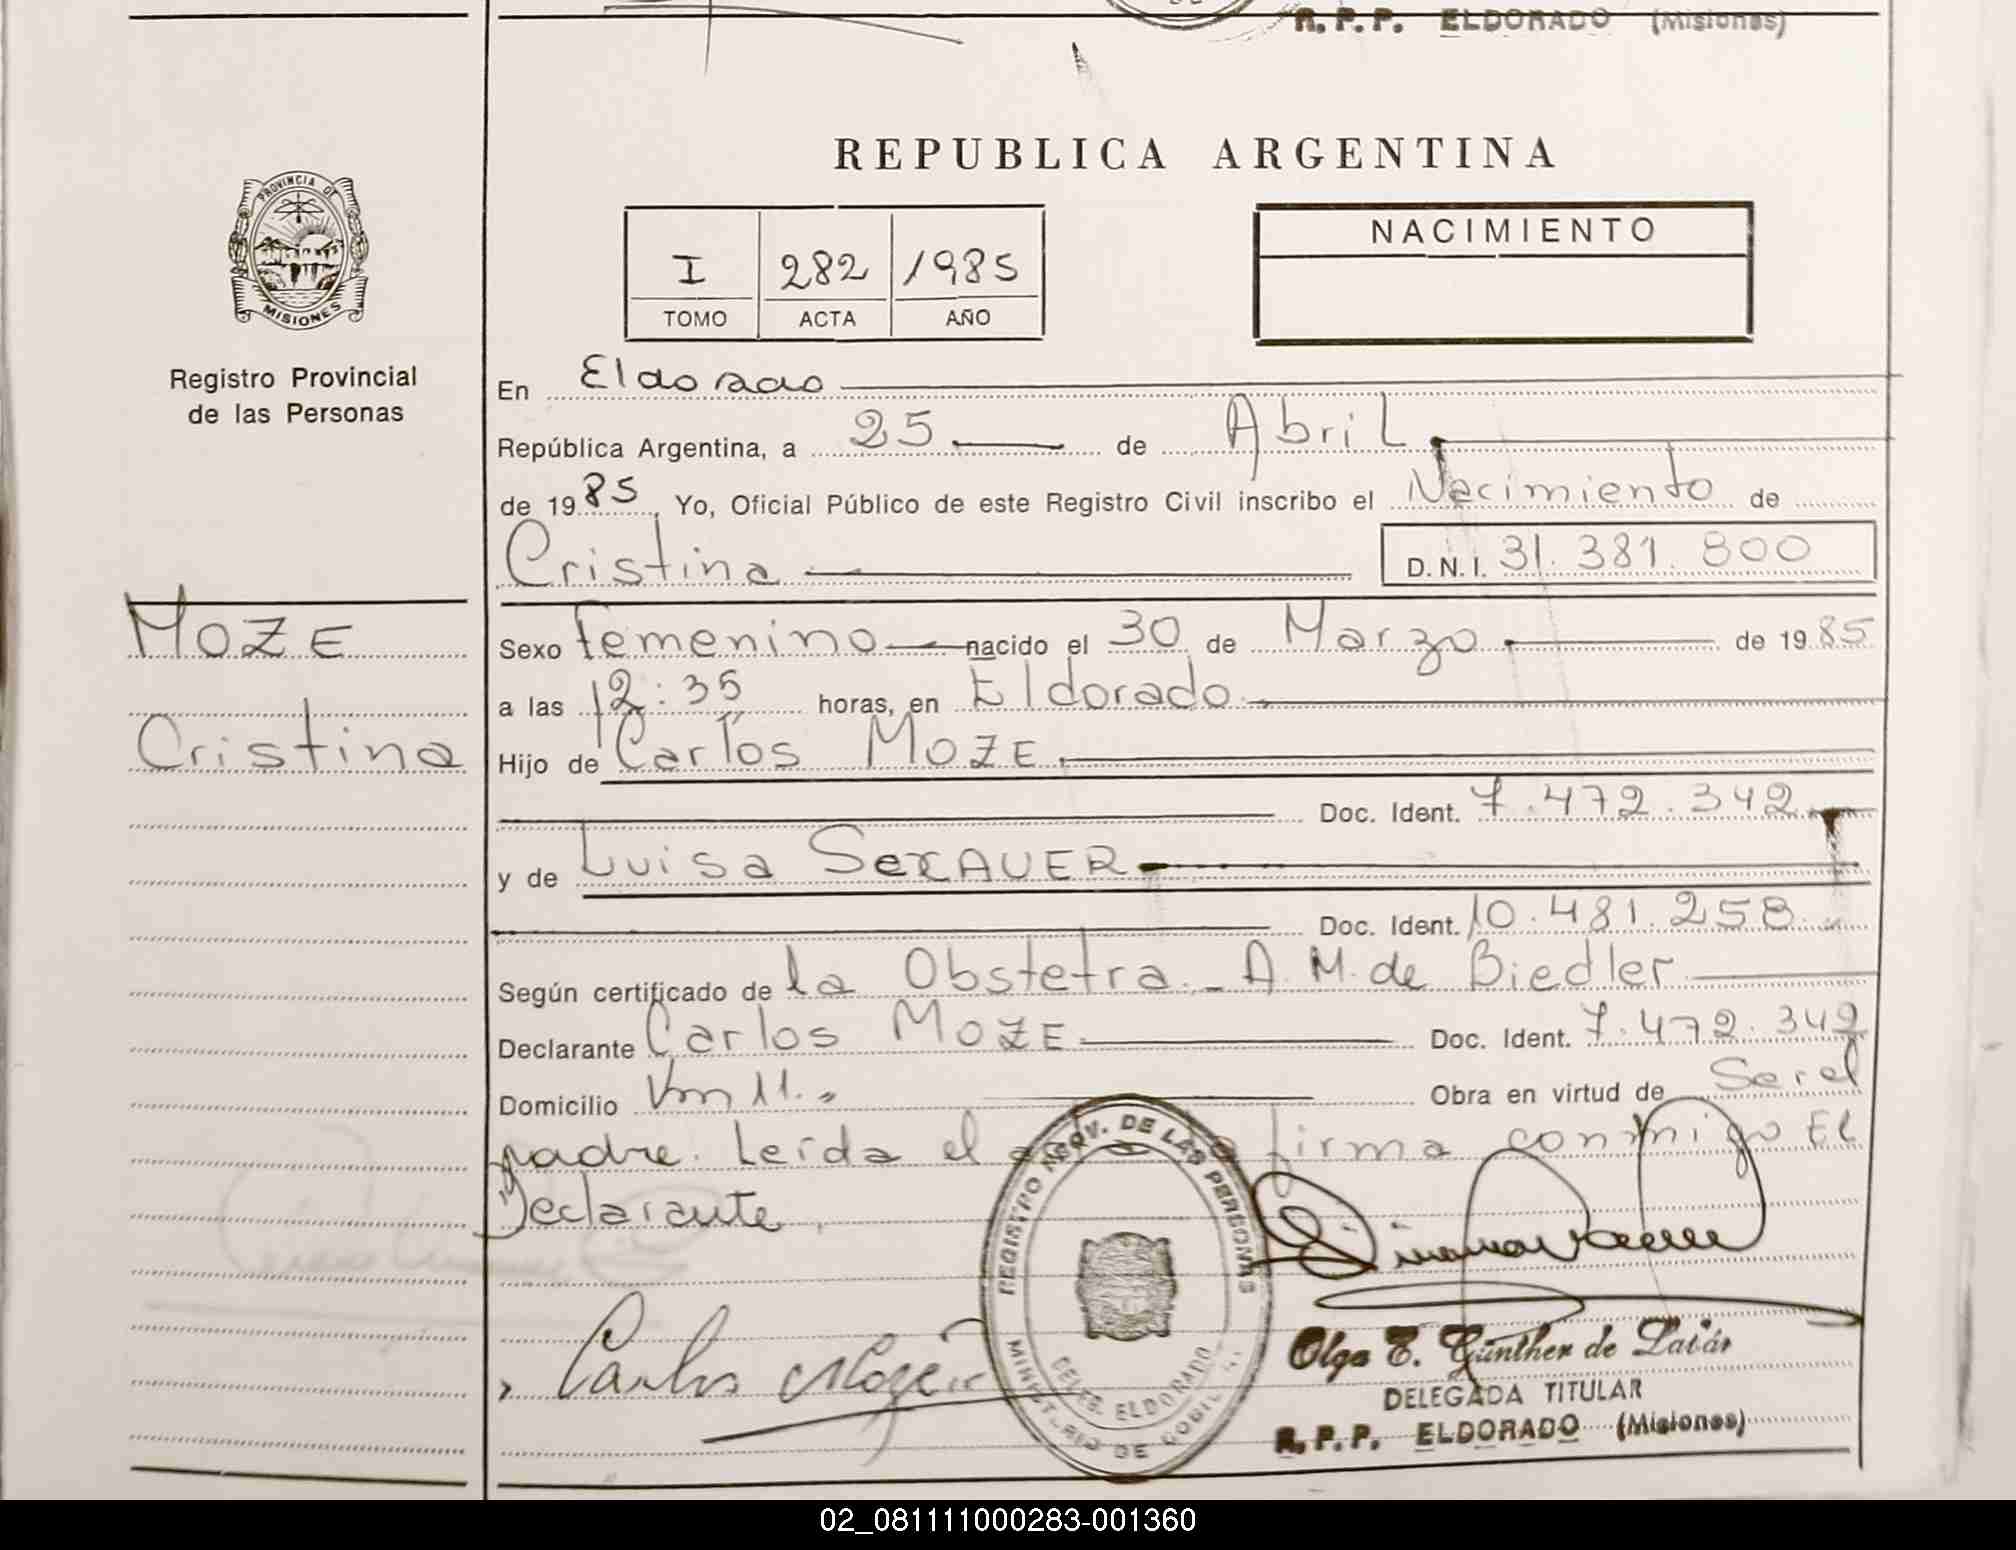 R. P. P. ELDORADO (Misiones)
PROVINCIA DE
MISIONES
Registro Provincial
de las Personas
REPUBLICA ARGENTINA
I 282 1985
TOMO ACTA AÑO
NACIMIENTO
En Eldorado
República Argentina, a 25 de Abril
de 1985, Yo, Oficial Público de este Registro Civil inscribo el Nacimiento de
Cristina D.N.I. 31.381.800
MOZE
Cristina
Sexo femenino nacido el 30 de Marzo de 1985
a las 12:35 horas, en Eldorado
Hijo de Carlos MOZE
Doc. Ident. 7.472.342
y de Luisa SEXAUER
Doc. Ident. 10.481.258
Según certificado de la Obstetra. A.M. de Biedler
Declarante Carlos MOZE Doc. Ident. 7.472.342
Domicilio Km 11. Obra en virtud de Ser el
padre. Leída el firma conmigo El
Declarante
REGISTRO PROV. DE LAS PERSONAS
DELEG. ELDORADO
MINISTERIO DE GOBIERNO
Carlos
Olga E. Günther de
DELEGADA TITULAR
R. P. P. ELDORADO (Misiones)
02_081111000283-001360